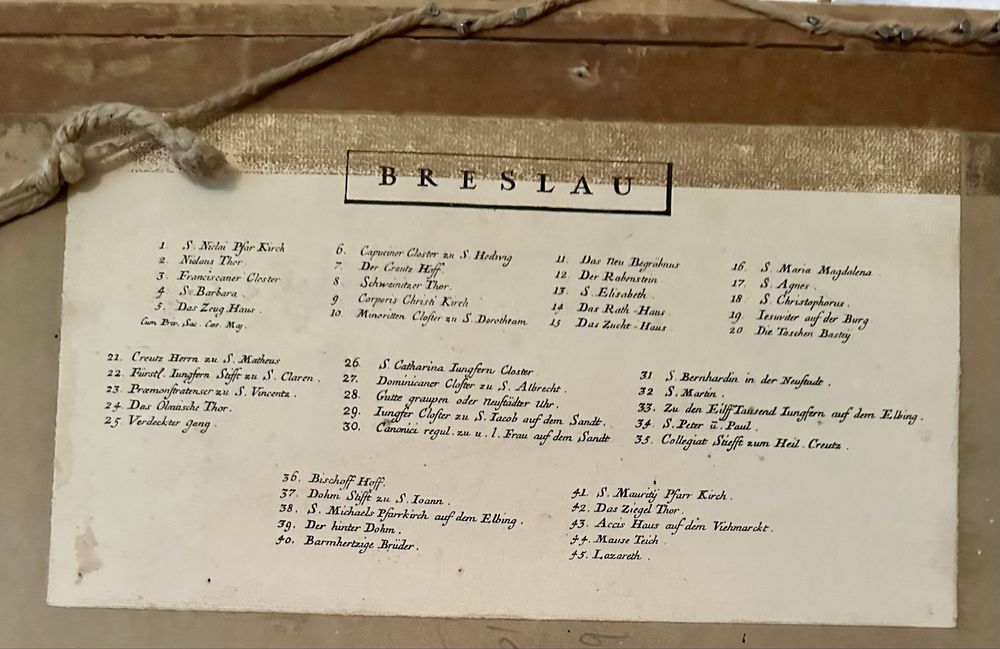 BRESLAU
1. S. Niclai Pfar Kirch
2. Niclaus Thor.
3. Franciscaner Closter
4. S. Barbara.
5. Das Zeug Haus.
Cum Priv. Sac. Cæs. Maj.
6. Capuciner Closter zu S. Hedwig
7. Der Creutz Hoff.
8. Schweinitzer Thor.
9. Corporis Christi Kirch
10. Minoritten Closter zu S. Dorotheam
11. Das Neu Begräbnus
12. Der Rabenstein.
13. S. Elisabeth.
14. Das Rath-Haus
15. Das Zucht-Haus
16. S. Maria Magdalena.
17. S. Agnes.
18. S. Christophorus.
19. Iesuviter auf der Burg
20. Die Taschen Bastey
21. Creutz Herrn zu S. Matheus
22. Fürstl. Iungfern Stifft zu S. Claren.
23. Præmonstratenser zu S. Vincentz.
24. Das Olmische Thor.
25. Verdeckter gang.
26. S. Catharina Iungfern Closter
27. Dominicaner Closter zu S. Albrecht.
28. Gutte graupen oder Neustädter Uhr.
29. Iungfer Closter zu S. Iacob auf dem Sandt.
30. Canonici regul. zu u. l. Frau auf dem Sandt
31. S. Bernhardin in der Neustadt.
32. S. Martin.
33. Zu den Eilff Tausend Iungfern auf dem Elbing.
34. S. Peter ü. Paul.
35. Collegiat Stiefft zum Heil. Creutz.
36. Bischoff Hoff.
37. Dohm Stifft zu S. Ioann.
38. S. Michaels Pfarrkirch auf dem Elbing.
39. Der hinter Dohm.
40. Barmhertzige Brüder.
41. S. Mauritÿ Pfarr Kirch.
42. Das Ziegel Thor.
43. Accis Haus auf dem Viehmarckt.
44. Mause Teich.
45. Lazareth.